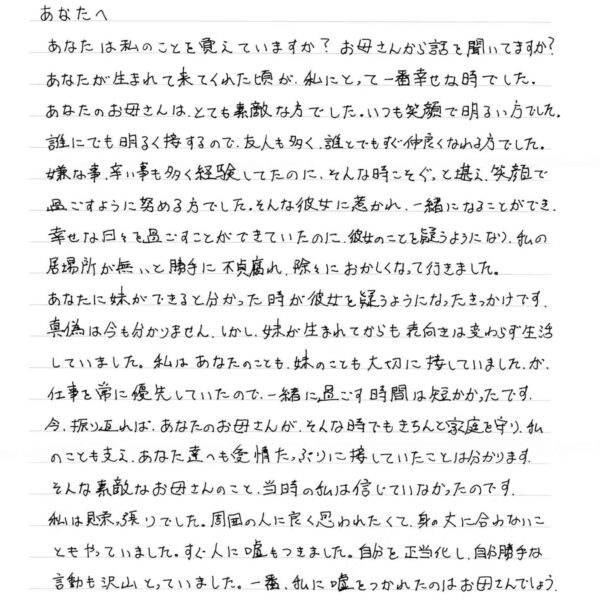 あなたへ
あなたは私のことを覚えていますか？お母さんから話を聞いてますか？
あなたが生まれて来てくれた頃が、私にとって一番幸せな時でした。
あなたのお母さんは、とても素敵な方でした。いつも笑顔で明るい方でした。
誰にでも明るく接するので、友人も多く、誰とでもすぐ仲良くなれる方でした。
嫌な事、辛い事も多く経験してたのに、そんな時こそぐっと堪え、笑顔で
過ごすように努める方でした。そんな彼女に惹かれ、一緒になることができ、
幸せな日々を過ごすことができていたのに、彼女のことを疑うようになり、私の
居場所が無いと勝手に不貞腐れ、除々におかしくなって行きました。
あなたに妹ができると分かった時が彼女を疑うようになったきっかけです。
真偽は今も分かりません。しかし、妹が生まれてからも表向きは変わらず生活
していました。私はあなたのことも、妹のことも大切に接していました。が、
仕事を常に優先していたので、一緒に過ごす時間は短かかったです。
今、振り返れば、あなたのお母さんが、そんな時でもきちんと家庭を守り、私
のことも支え、あなた達へも愛情たっぷりに接していたことは分かります。
そんな素敵なお母さんのこと、当時の私は信じていなかったのです。
私は見栄っ張りでした。周囲の人に良く思われたくて、身の丈に合わないこ
ともやっていました。すぐ人に嘘もつきました。自分を正当化し、自分勝手な
言動も沢山とっていました。一番、私に嘘をつかれたのはお母さんでしょう。